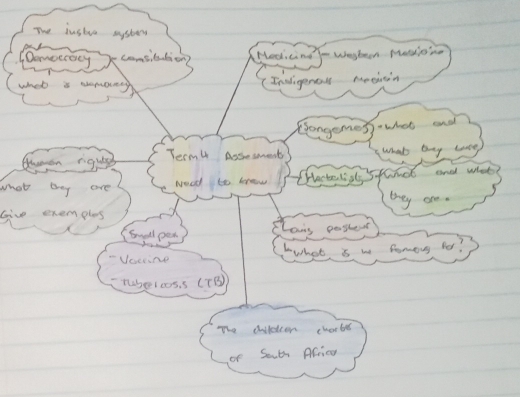 The justice system
and
Democracy - consitibution
what is democracy
Medicine - Western Medicine
Indigenous medicin
Term 4 Assesment
Need to know
Songomas - what and
what they cure
Herbalist - what and what
they are.
Human rights
what they are
Give examples
Smallpox
- Vaccine
- Tubercosis (TB)
Louis pasteur
what is he famous for?
The children charter
of South Africa